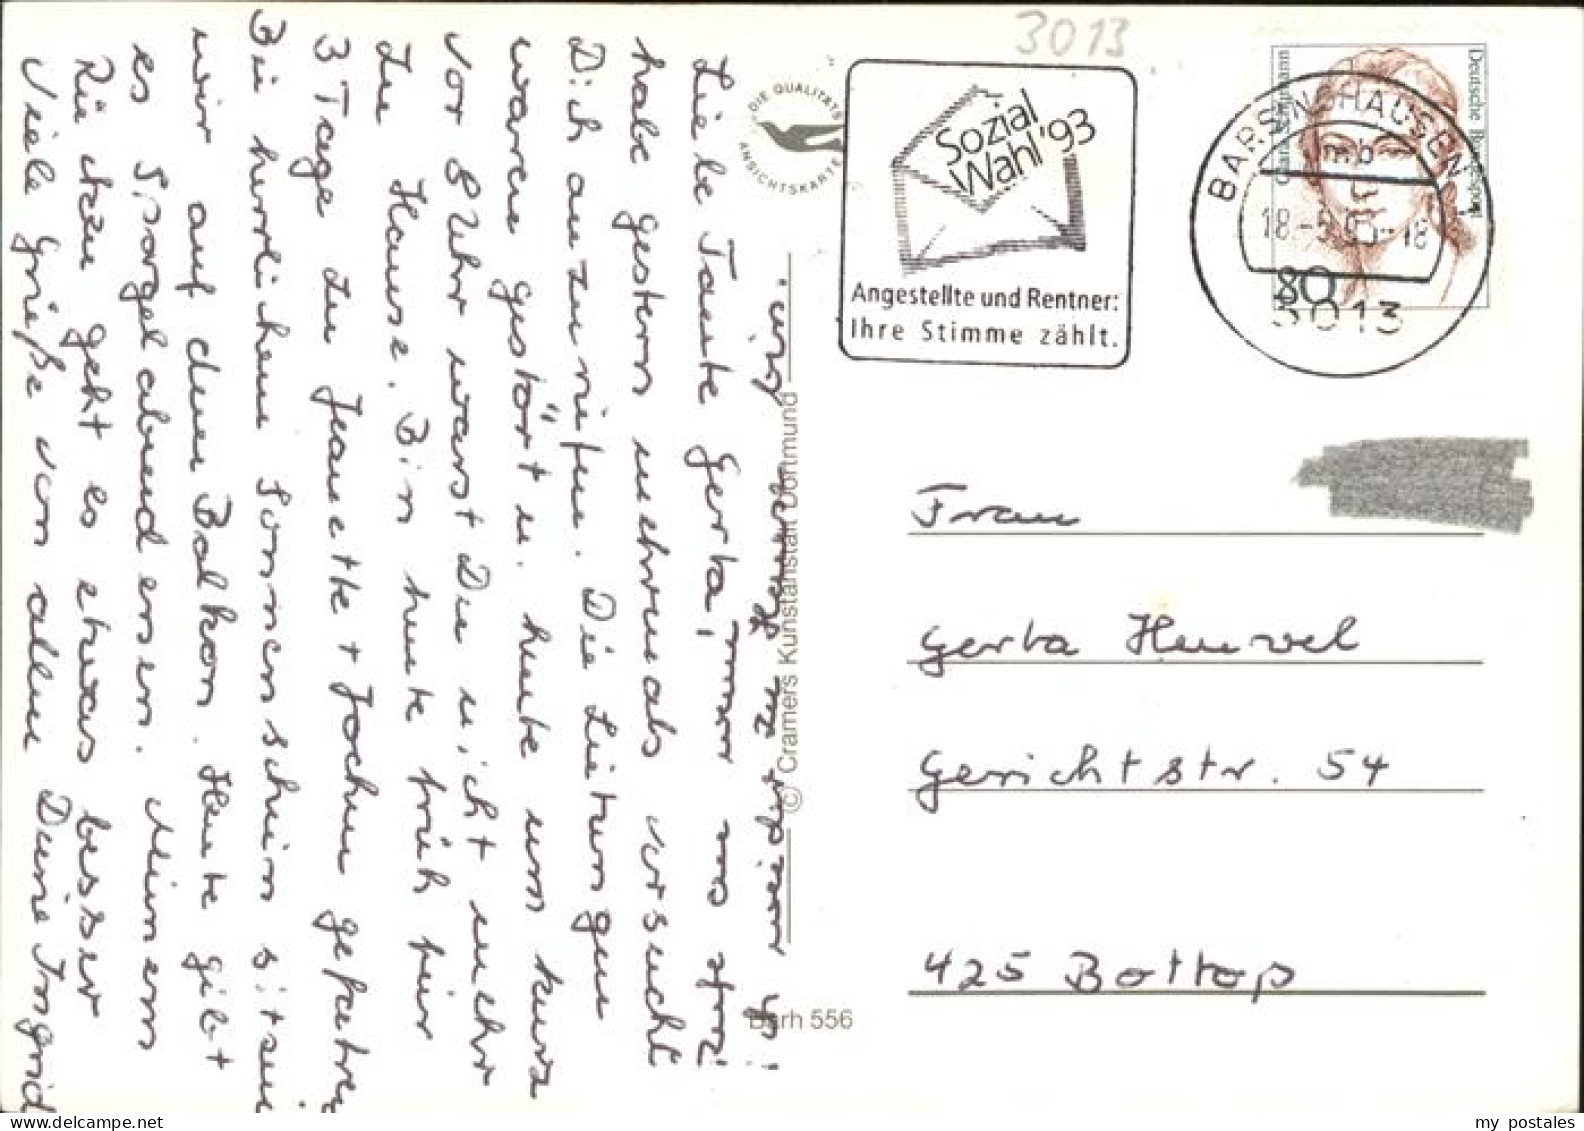 3013
Liebe Tante Gerta,
habe gestern mehrmals versucht
Dich anzurufen. Die Leitungen
waren gestört u. heute um kurz
vor 8 Uhr warst Du nicht mehr
zu Hause. Bin heute früh für
3 Tage zu Jeanette + Jochen gefahren
Bei herrlichem Sonnenschein sitzen
wir auf dem Balkon. Heute gibt
es Spargelabendessen. Meinem
Rücken geht es etwas besser
Viele Grüße von allen Deine Ingrid
DIE QUALITÄTS
ANSICHTSKARTE
© Cramers Kunstanstalt Dortmund
Barh 556
Sozial
Wahl '93
Angestellte und Rentner:
Ihre Stimme zählt.
BARSINGHAUSEN 1
mb
18.-5.93-18
3013
Deutsche Bundespost
80
Frau
Gerta Heuvel
Gerichtstr. 54
425 Bottop